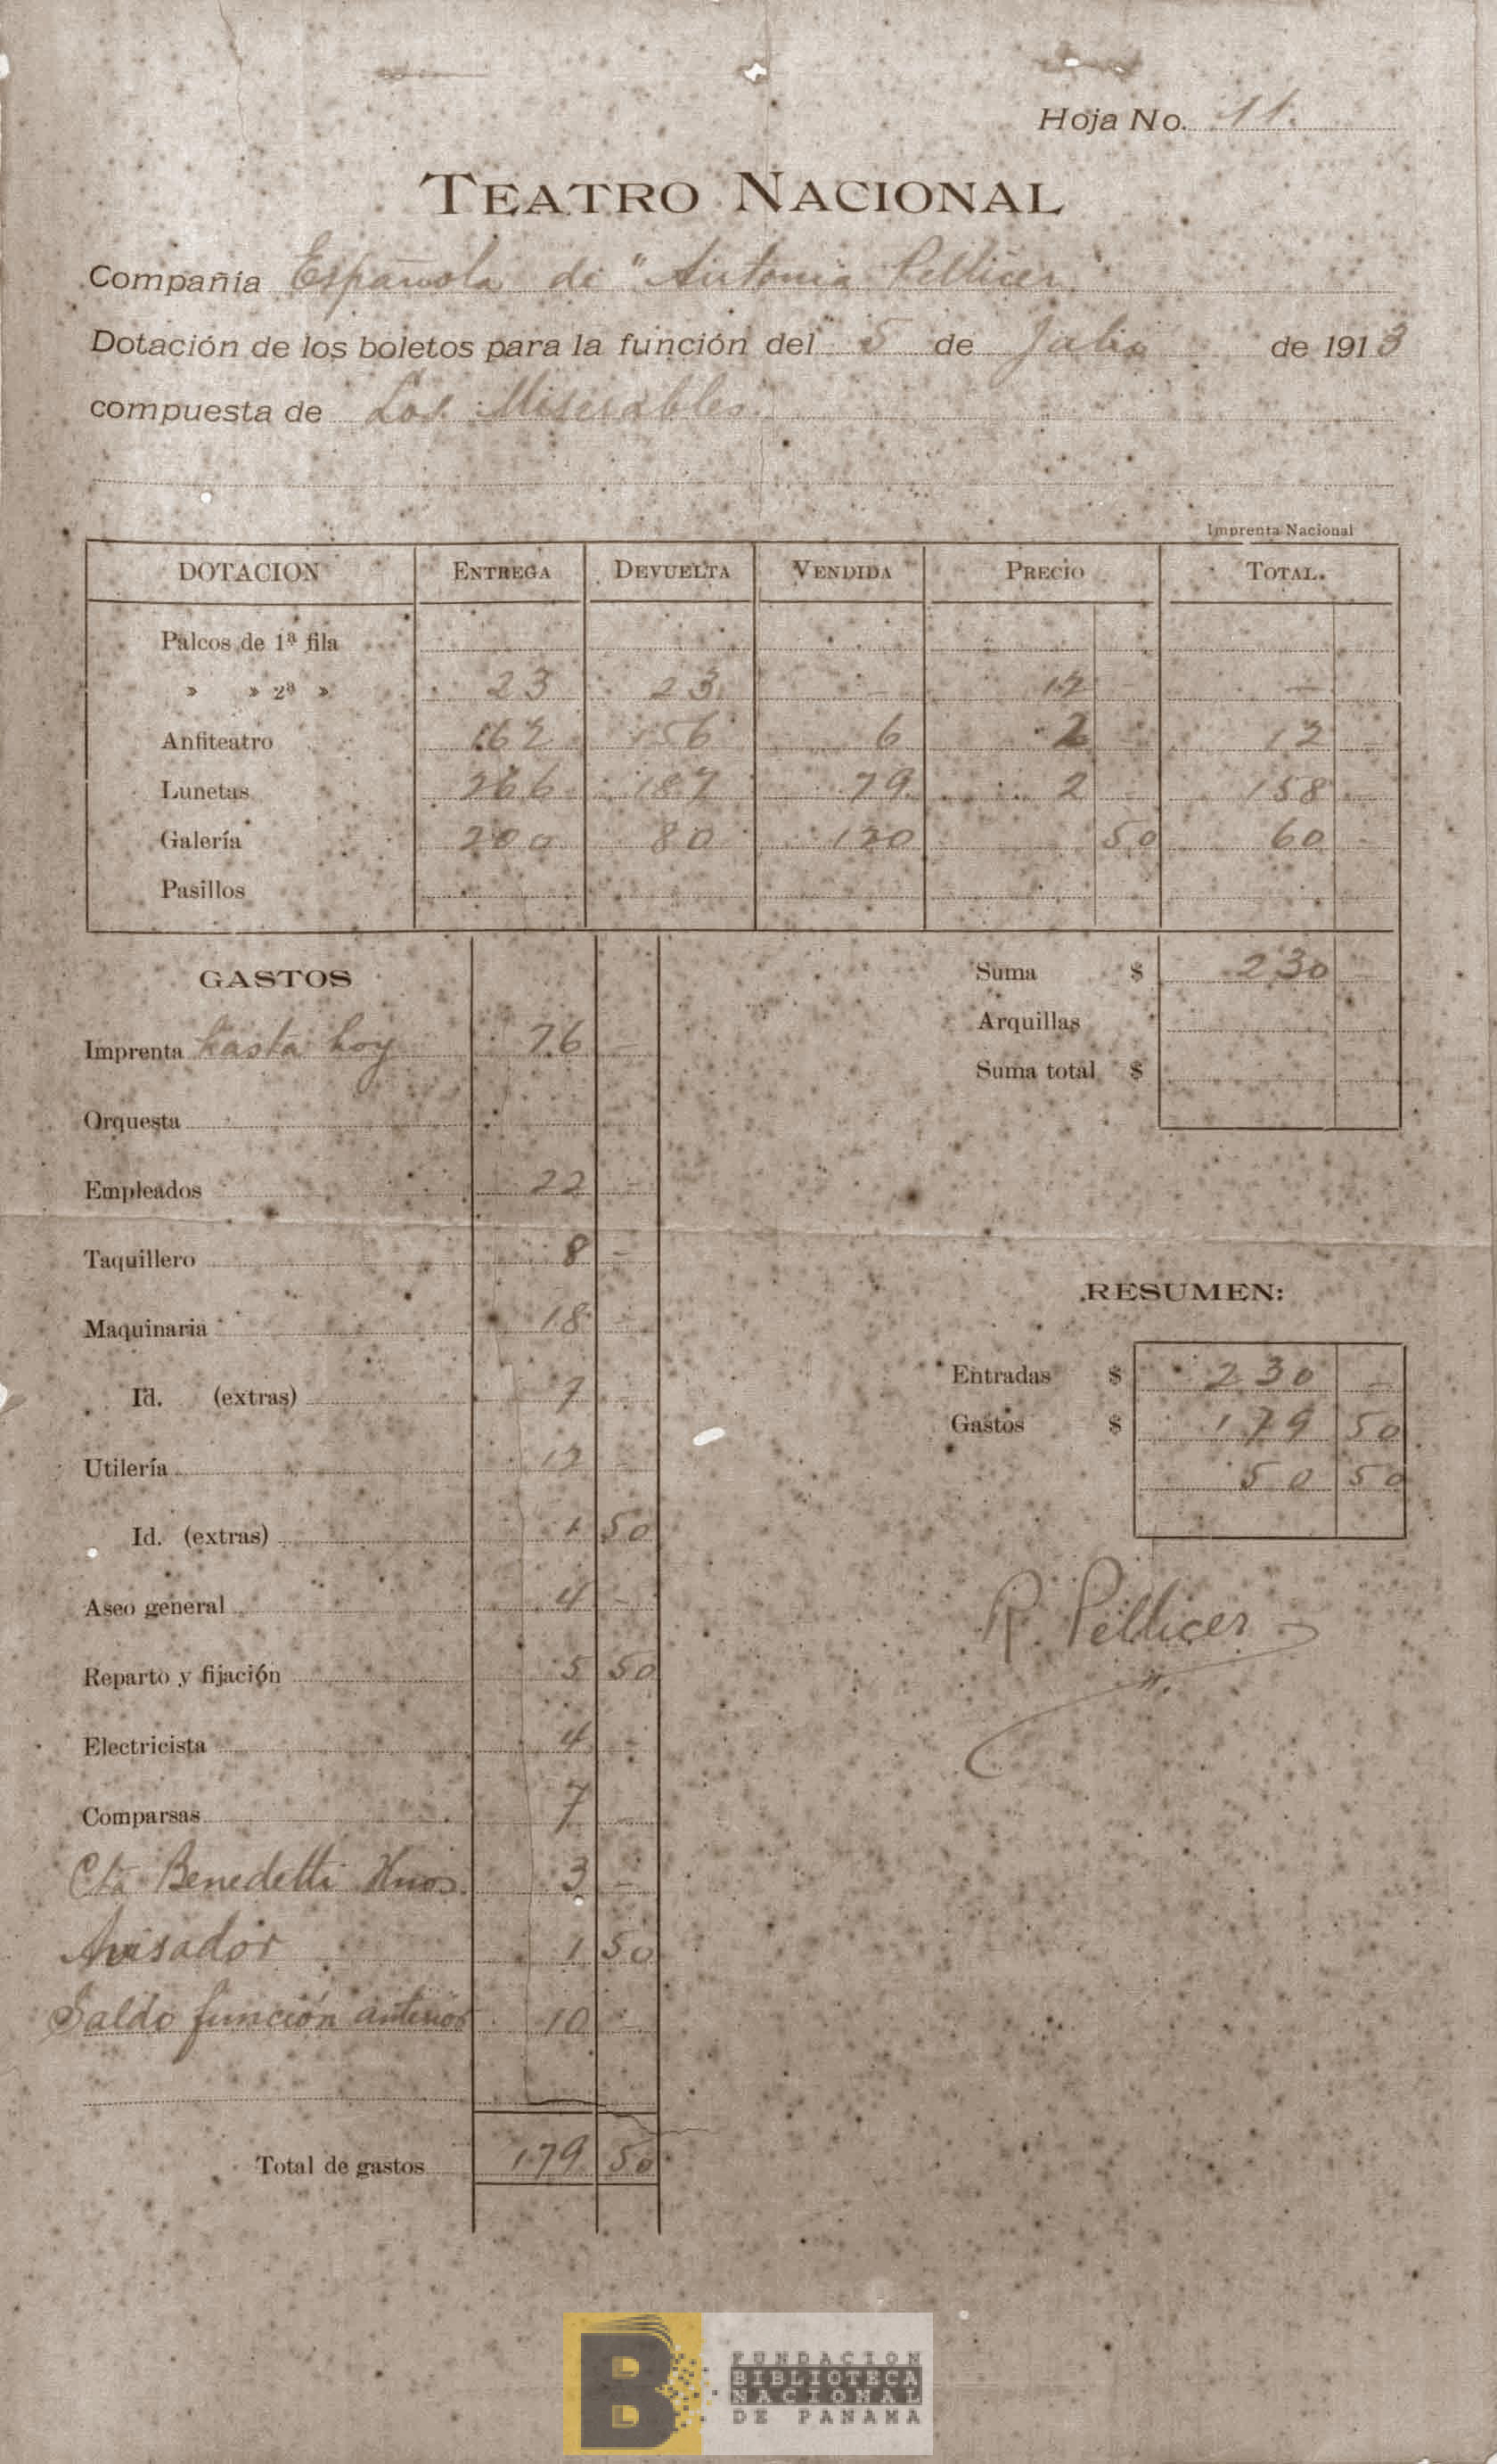 Hoja No. 11.
TEATRO NACIONAL
Compañía Española de "Antonia Pellicer"
Dotación de los boletos para la función del 5 de Julio de 1913
compuesta de Los Miserables.
Imprenta Nacional
DOTACION ENTREGA DEVUELTA VENDIDA PRECIO TOTAL.
Palcos de 1ª fila
» » 2ª » 23 23 - 12 - -
Anfiteatro 162 156 6 2 - 12 -
Lunetas 266 187 79 2 - 158 -
Galería 200 80 120 50 60 -
Pasillos
Suma $ 230 -
Arquillas
Suma total $
GASTOS
Imprenta hasta hoy 76 -
Orquesta
Empleados 22 -
Taquillero 8 -
Maquinaria 18 -
Id. (extras) 7 -
Utilería 12 -
Id. (extras) 1 50
Aseo general 4 -
Reparto y fijación 5 50
Electricista 4 -
Comparsas 7 -
Cta Benedetti Hnos. 3 -
Avisador 1 50
Saldo función anterior 10 -
Total de gastos 179 50
RESUMEN:
Entradas $ 230 -
Gastos $ 179 50
50 50
R. Pellicer
FUNDACION
BIBLIOTECA
NACIONAL
DE PANAMA